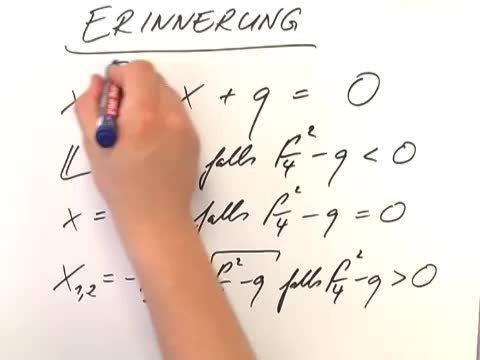 ERINNERUNG
x x + q = 0
𝕃 falls p²/4 - q < 0
x = falls p²/4 - q = 0
x₁,₂ = - √p²-q falls p²/4 - q > 0